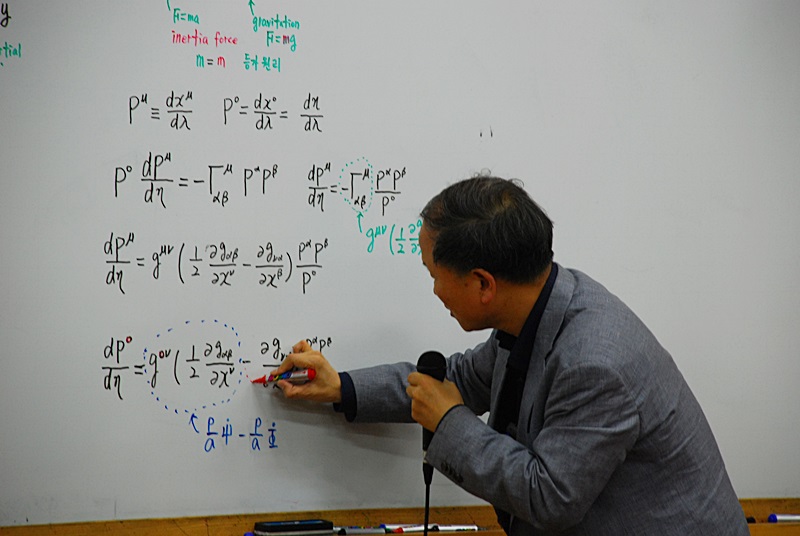 y
tial
F=ma
gravitation
inertia force
F=mg
m=m 등가원리
P^μ ≡ dx^μ/dλ P^0 = dx^0/dλ = dη/dλ
P^0 dP^μ/dη = -Γ^μ_αβ P^α P^β dP^μ/dη = -Γ^μ_αβ P^α P^β/P^0
g^μν (1/2 ∂g
dP^μ/dη = g^μν (1/2 ∂g_αβ/∂x^ν - ∂g_να/∂x^β) P^α P^β/P^0
dP^0/dη = g^0ν (1/2 ∂g_αβ/∂x^ν - ∂g P^α P^β
P/a ψ̇ - P/a Φ̇